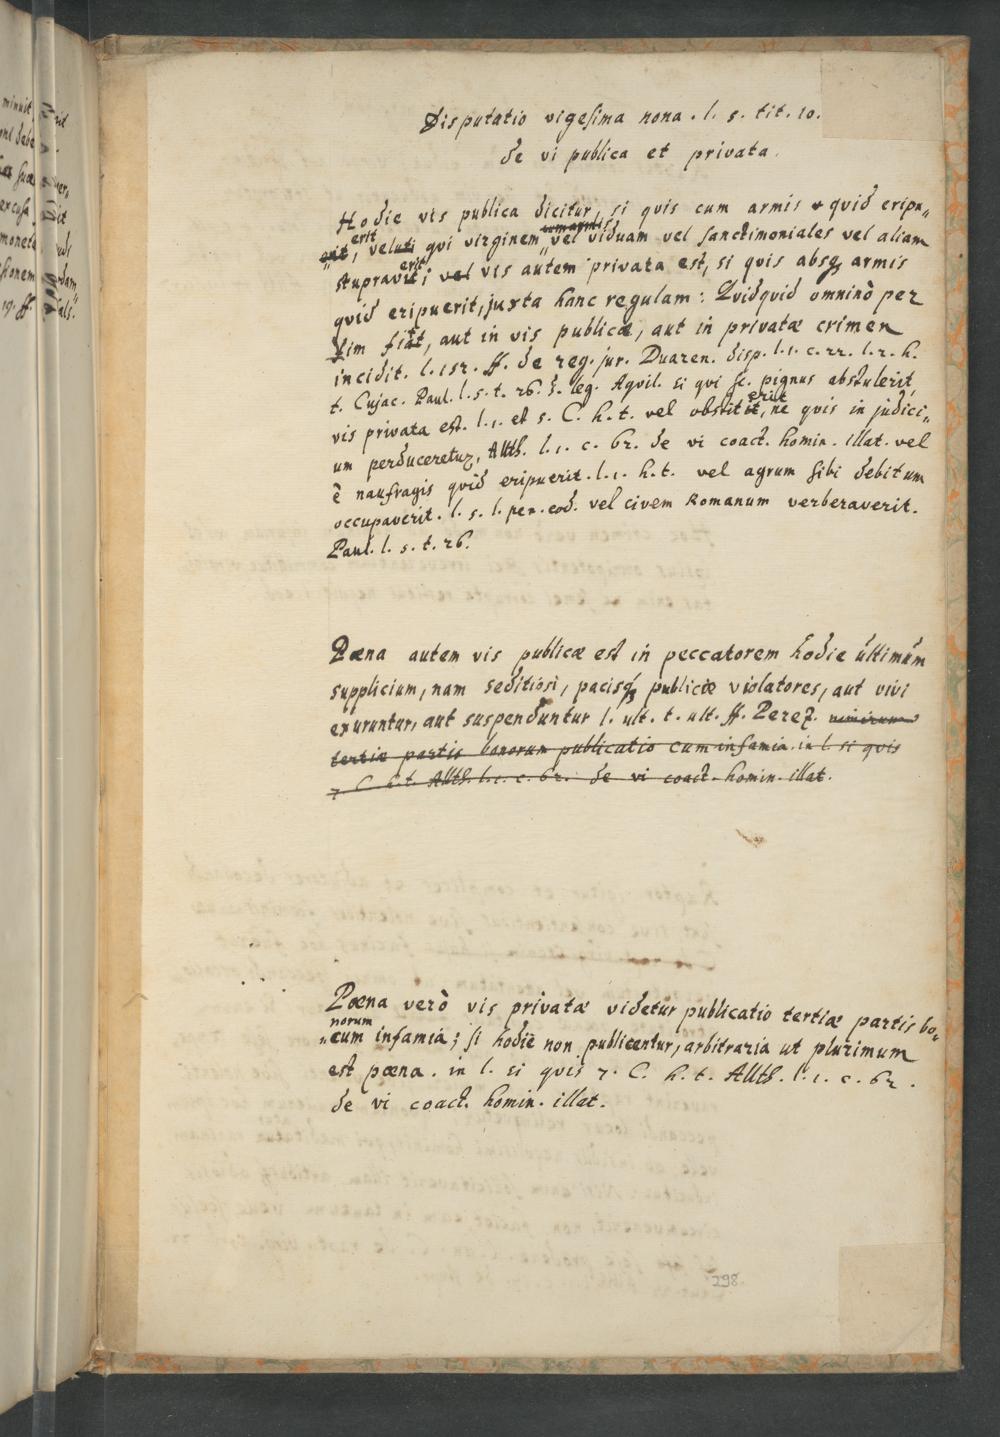 Disputatio vigesima nona. l. 5. tit. 10.
de vi publica et privata.
Hodie vis publica dicitur, si quis cum armis quid eripu„
„erit, veluti qui virginem vel viduam vel sanctimoniales vel aliam
stupraverit; vel vis autem privata est, si quis absq armis
quid eripuerit, juxta hanc regulam: Quidquid omninò per
vim fiat, aut in vis publicæ, aut in privatæ crimen
incidit. l. 152. ff. de reg. jur. Duaren. disp. l. 1. c. 22. l. 2. h.
t. Cujac. Paul. l. 5. t. 26. §. leg. Aquil. si qui sc. pignus abstulerit,
vis privata est. l. 1. et 5. C. h. t. vel obstiterit, ne quis in judici„
um perduceretur, Alth. l. 1. c. 62. de vi coact. homin. illat. vel
è naufragis quid eripuerit. l. 1. h. t. vel agrum sibi debitum
occupaverit. l. 5. l. pen. eod. vel civem Romanum verberaverit.
Paul. l. 5. t. 26.
Pœna autem vis publicæ est in peccatorem hodie ultimum
supplicium, nam seditiosi, pacisq publicæ violatores, aut vivi
exuruntur, aut suspenduntur l. ult. t. ult. ff. Perez. nimirum
tertiæ partis bonorum publicatio cum infamia. in l. si quis
7 C. h. t. Alth. l. 1. c. 62. de vi coact. homin. illat.
Pœna verò vis privatæ videtur publicatio tertiæ partis bo„
„norum cum infamiâ; si hodiè non publicentur, arbitraria ut plurimum
est pœna. in l. si quis 7. C. h. t. Alth. l. 1. c. 62.
de vi coact. homin. illat.
298